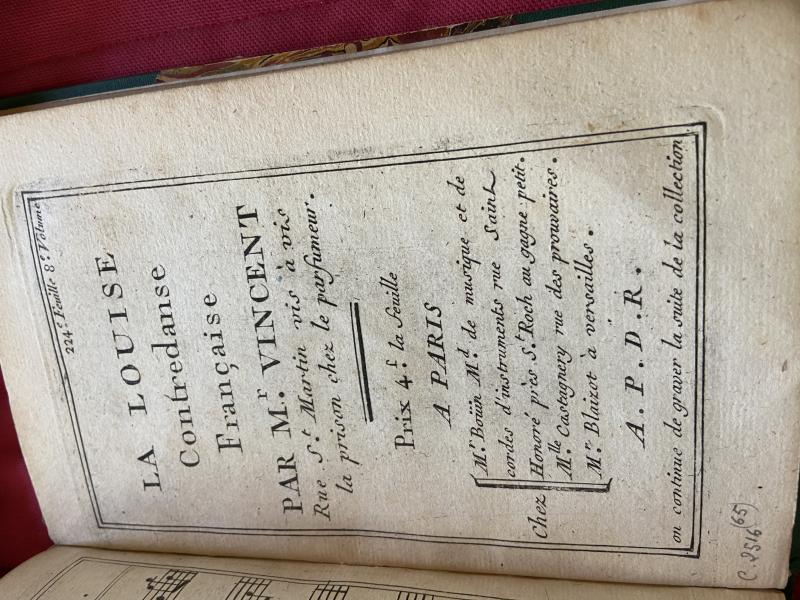 224.e Feuille 8.e Volume
LA LOUISE
Contredanse
Française
PAR M.r VINCENT
Rue S.t Martin vis à vis
la prison chez le parfumeur.
Prix 4.f la feuille
A PARIS
Chez
M.r Boüin M.d de musique et de
cordes d'instruments rue Saint
Honoré près S.t Roch au gagne petit.
M.lle Castagnery rue des prouvaires.
M.r Blaizot à versailles.
A. P. D. R.
on continue de graver la suite de la collection
C. 2516 (65)